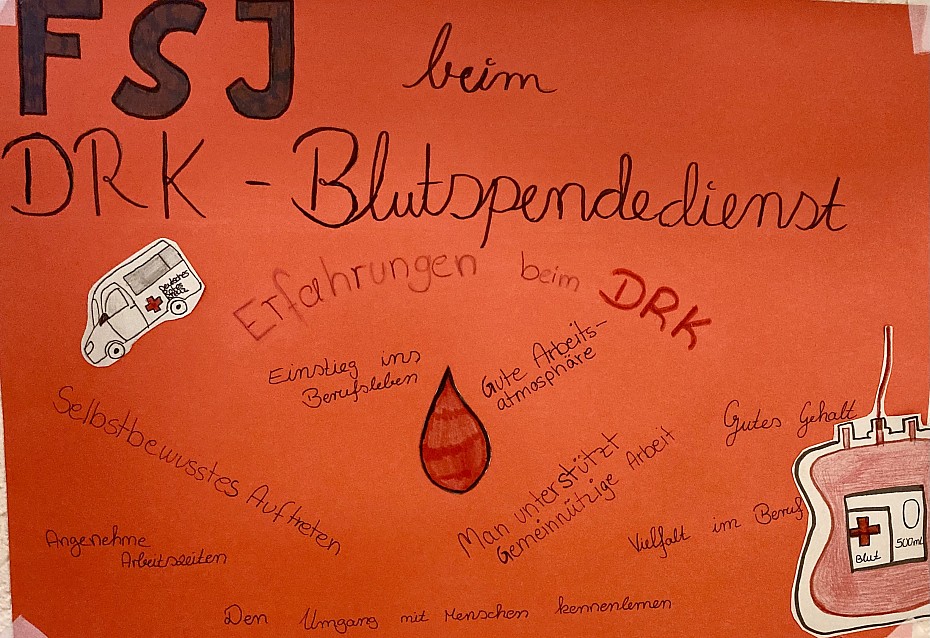 FSJ beim
DRK - Blutspendedienst
Erfahrungen beim DRK
Deutsches
Rotes
Kreuz
Einstieg ins
Berufsleben
Gute Arbeits-
atmosphäre
Selbstbewusstes Auftreten
Gutes Gehalt
Man unterstützt
Gemeinnützige Arbeit
Vielfalt im Beruf
Angenehme
Arbeitszeiten
Den Umgang mit Menschen kennenlernen
O
Blut
500ml